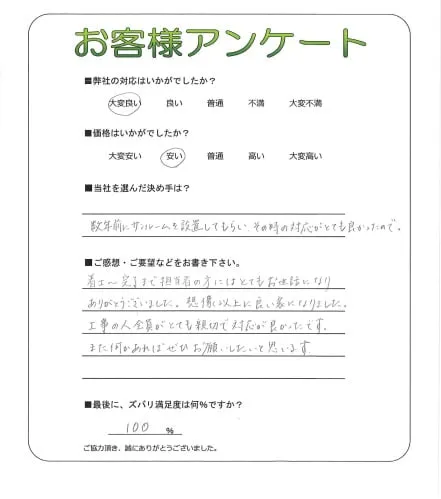 お客様アンケート
■弊社の対応はいかがでしたか？
大変良い 良い 普通 不満 大変不満
■価格はいかがでしたか？
大変安い 安い 普通 高い 大変高い
■当社を選んだ決め手は？
数年前にサンルームを設置してもらい、その時の対応がとても良かったので。
■ご感想・ご要望などをお書き下さい。
着工～完了まで担当者の方にはとてもお世話になり
ありがとうございました。想像以上に良い家になりました。
工事の人全員がとても親切で対応が良かったです。
また何かあればぜひお願いしたいと思います
■最後に、ズバリ満足度は何%ですか？
100 %
ご協力頂き、誠にありがとうございました。